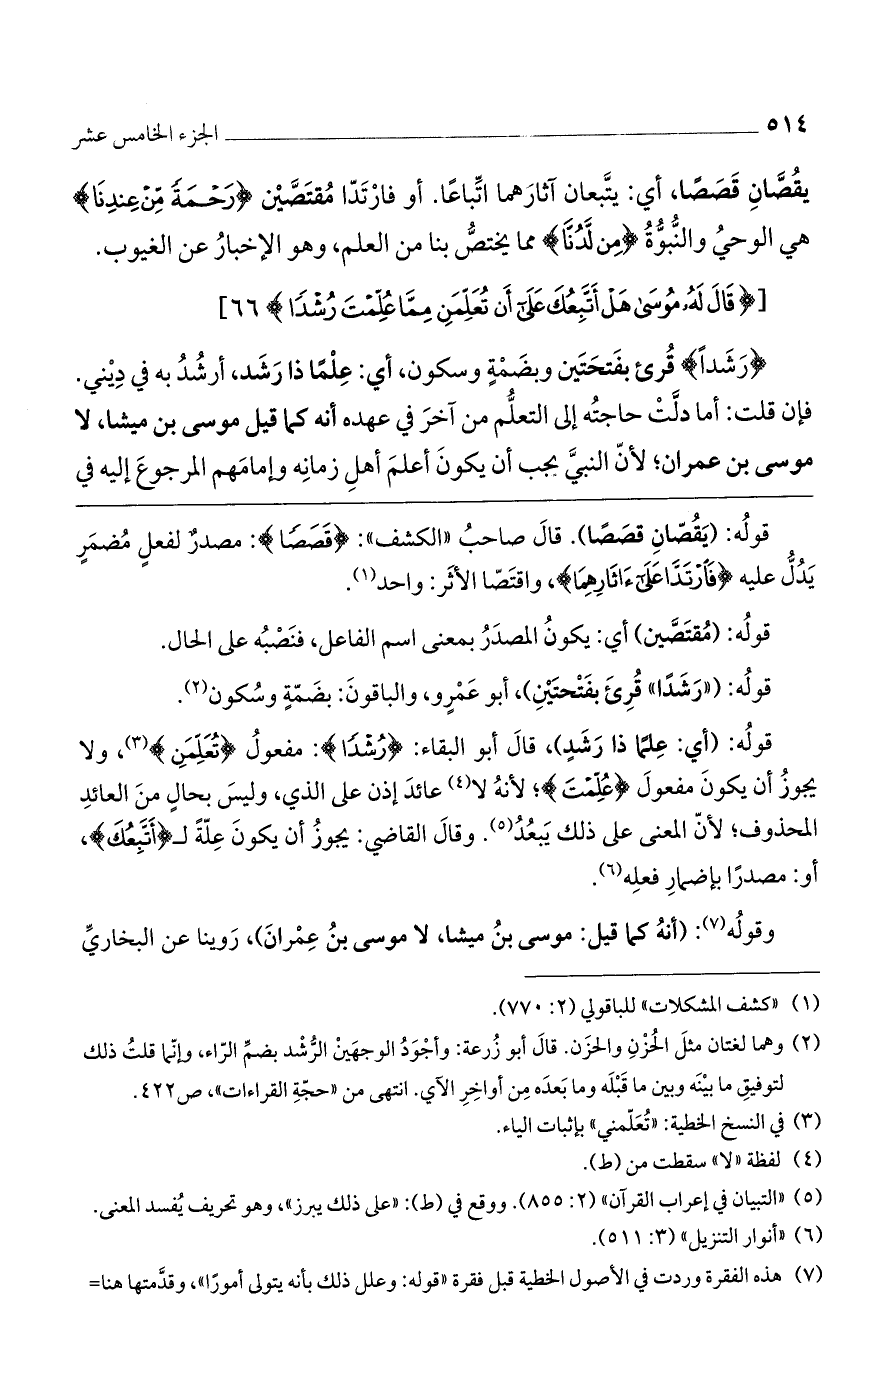 ٥١٤ الجزء الخامس عشر
يقُصَّانِ قَصَصًا، أي: يتَّبعان آثارَهما اتِّباعًا. أو فارْتَدّا مُقتَصَّيْن ﴿رَحْمَةً مِّنْ عِندِنَا﴾
هي الوحيُ والنُّبوُّةُ ﴿مِن لَّدُنَّا﴾ مما يختصُّ بنا من العلم، وهو الإخبارُ عن الغيوب.
[﴿قَالَ لَهُۥ مُوسَىٰ هَلْ أَتَّبِعُكَ عَلَىٰٓ أَن تُعَلِّمَنِ مِمَّا عُلِّمْتَ رُشْدًا﴾ ٦٦]
﴿رَشَداً﴾ قُرئ بفَتحتَين وبضَمْةٍ وسكون، أي: عِلْمًا ذا رَشَد، أرشُدُ به في دِيْني.
فإن قلت: أما دلَّتْ حاجتُه إلى التعلُّم من آخرَ في عهده أنه كما قيل موسى بن ميشا، لا
موسى بن عمران؛ لأنّ النبيَّ يجب أن يكونَ أعلمَ أهلِ زمانِه وإمامَهم المرجوعَ إليه في
قولُه: (يَقُصّانِ قصَصًا). قالَ صاحبُ «الكشف»: ﴿قَصَصًا﴾: مصدرٌ لفعلٍ مُضمَرٍ
يَدُلُّ عليه ﴿فَٱرْتَدَّا عَلَىٰٓ ءَاثَارِهِمَا﴾، واقتَصّا الأثَر: واحد(١).
قولُه: (مُقتَصَّين) أي: يكونُ المصدَرُ بمعنى اسم الفاعل، فنَصْبُه على الحال.
قولُه: («رَشَدًا» قُرِئَ بفَتْحتَيْنِ)، أبو عَمْرٍو، والباقونَ: بضَمّةٍ وسُكون(٢).
قولُه: (أي: عِلمًا ذا رَشَدٍ)، قالَ أبو البقاء: ﴿رُشْدًا﴾: مفعولُ ﴿تُعَلِّمَنِ﴾(٣)، ولا
يجوزُ أن يكونَ مفعولَ ﴿عُلِّمْتَ﴾؛ لأنهُ لا(٤) عائدَ إذن على الذي، وليسَ بحالٍ منَ العائدِ
المحذوف؛ لأنّ المعنى على ذلك يَبعُدُ(٥). وقالَ القاضي: يجوزُ أن يكونَ عِلّةً لـ﴿أَتَّبِعُكَ﴾،
أو: مصدرًا بإضمارِ فعلِه(٦).
وقولُه(٧): (أنهُ كما قيل: موسى بنُ ميشا، لا موسى بنُ عِمْرانَ)، رَوينا عن البخاريِّ
(١) «كشف المشكلات» للباقولي (٢: ٧٧٠).
(٢) وهما لغتان مثلَ الحُزْنِ والحزَن. قالَ أبو زُرعة: وأجْوَدُ الوجهَينْ الرُّشْد بضمِّ الرّاء، وإنّما قلتُ ذلك
لتوفيقِ ما بيْنَه وبين ما قَبْلَه وما بَعدَه مِن أواخِرِ الآي. انتهى من «حجّةِ القراءات»، ص٤٢٢.
(٣) في النسخ الخطية: «تُعَلّمني» بإثبات الياء.
(٤) لفظة «لا» سقطت من (ط).
(٥) «التبيان في إعراب القرآن» (٢: ٨٥٥). ووقع في (ط): «على ذلك يبرز»، وهو تحريف يُفسد المعنى.
(٦) «أنوار التنزيل» (٣: ٥١١).
(٧) هذه الفقرة وردت في الأصول الخطية قبل فقرة «قوله: وعلل ذلك بأنه يتولى أمورًا»، وقدَّمتها هنا=